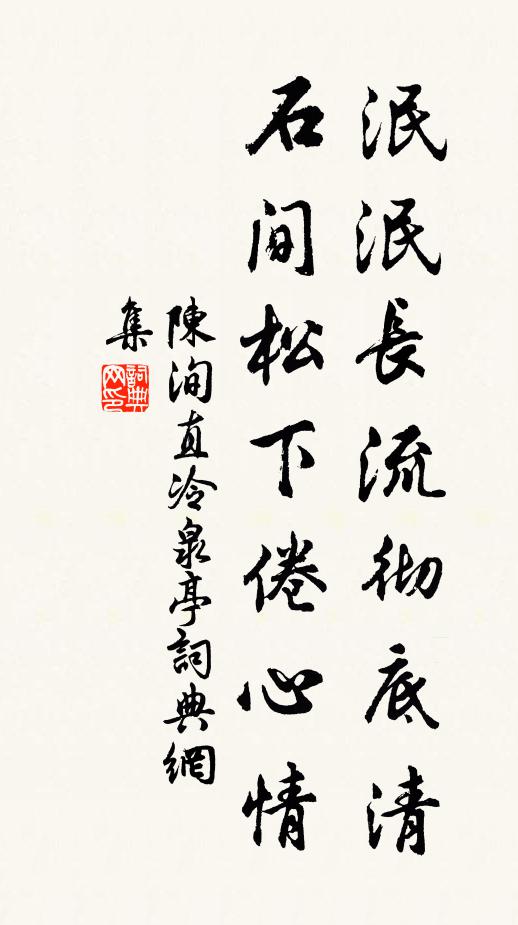 泯泯長流徹底清
石間松下倦心情
陳洵直冷泉亭詞典網
集
詞典
网印